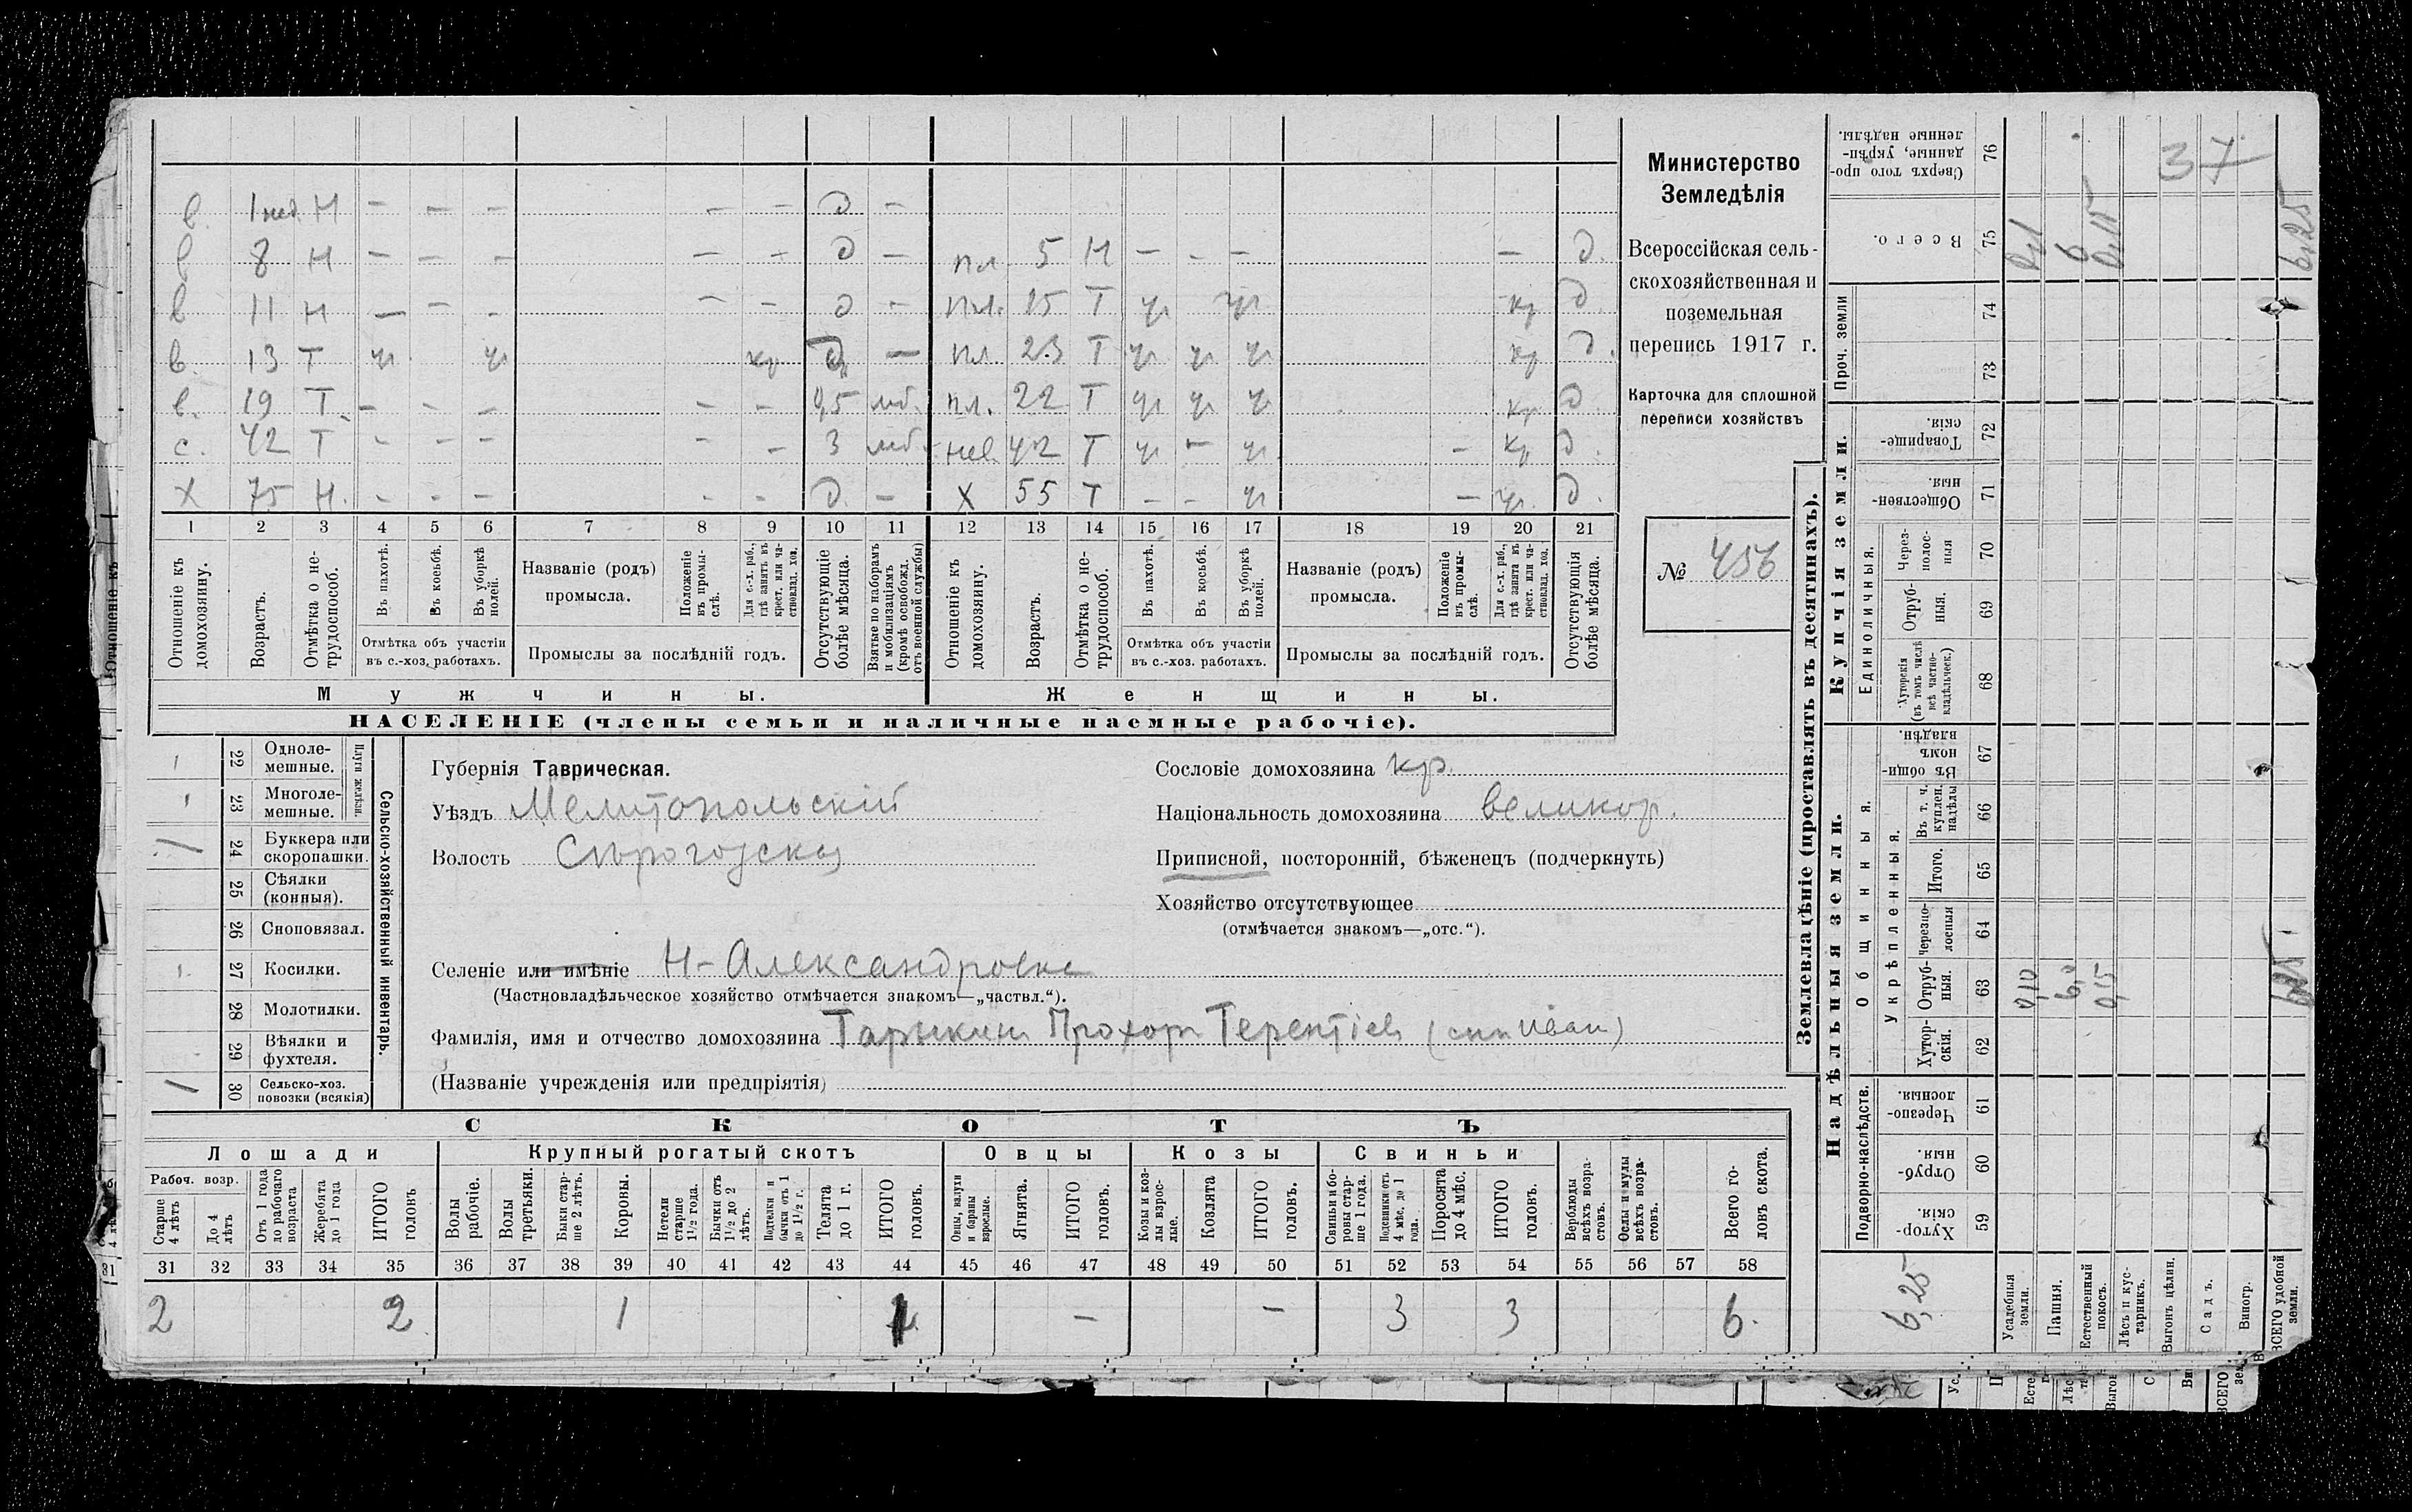 в. 1 нед Н — — — — — д —
в 8 Н — — — — — д — пл. 5 Н — — — — д.
в 11 Н — — — — — д — пл. 15 Т уч уч кр д.
в. 13 Т уч уч кр д — пл 23 Т уч уч уч кр д.
в. 19 Т. — — — — — 0,5 мб. пл. 22 Т уч уч уч кр д.
с. 42 Т — — — — — 3 мб. нев 42 Т уч — уч — кр д.
Х 75 Н. — — — — — д. — Х 55 Т — — уч — уч. д.
1 2 3 4 5 6 7 8 9 10 11 12 13 14 15 16 17 18 19 20 21
Отношеніе къ домохозяину.
Возрастъ.
Отмѣтка о нетрудоспособ.
Въ пахотѣ.
Въ косьбѣ.
Въ уборкѣ полей.
Отмѣтка объ участіи
въ с.-хоз. работахъ.
Названіе (родъ)
промысла.
Положеніе въ промыслѣ.
Для с.-х. раб., гдѣ занятъ въ крест. или частновлад. хоз.
Промыслы за послѣдній годъ.
Отсутствующіе болѣе мѣсяца.
Взятые по наборамъ и мобилизаціямъ (кромѣ освобожд. отъ военной службы)
Отношеніе къ домохозяину.
Возрастъ.
Отмѣтка о нетрудоспособ.
Въ пахотѣ.
Въ косьбѣ.
Въ уборкѣ полей.
Отмѣтка объ участіи
въ с.-хоз. работахъ.
Названіе (родъ)
промысла.
Положеніе въ промыслѣ.
Для с.-х. раб., гдѣ занята въ крест. или частновлад. хоз.
Промыслы за послѣдній годъ.
Отсутствующія болѣе мѣсяца.
Мужчины.
Женщины.
НАСЕЛЕНІЕ (члены семьи и наличные наемные рабочіе).
Министерство
Земледѣлія
Всероссійская сель-
скохозяйственная и
поземельная
перепись 1917 г.
Карточка для сплошной
переписи хозяйствъ
№ 456
Сельско-хозяйственный инвентарь.
Плуги желѣзн.
1 22 Одноле-
мешные.
1 23 Многоле-
мешные.
1 24 Буккера или
скоропашки.
25 Сѣялки
(конныя).
26 Сноповязал.
1 27 Косилки.
28 Молотилки.
29 Вѣялки и
фухтеля.
1 30 Сельско-хоз.
повозки (всякія)
Губернія Таврическая.
Уѣздъ Мелитопольскій
Волость Сѣрогозская
Селеніе или имѣніе Н-Александровка
(Частновладѣльческое хозяйство отмѣчается знакомъ—„частвл.“).
Фамилія, имя и отчество домохозяина Тарыкин Прохор Терентіев (сын Иван)
(Названіе учрежденія или предпріятія)
Сословіе домохозяина кр.
Національность домохозяина великор.
Приписной, посторонній, бѣженецъ (подчеркнуть)
Хозяйство отсутствующее
(отмѣчается знакомъ—„отс.“).
СКОТЪ
Лошади
Крупный рогатый скотъ
Овцы
Козы
Свиньи
Рабоч. возр.
Старше 4 лѣтъ
До 4 лѣтъ
Отъ 1 года до рабочаго возраста
Жеребята до 1 года
ИТОГО головъ
Волы рабочіе.
Волы третьяки.
Быки старше 2 лѣтъ.
Коровы.
Нетели старше 1½ года.
Бычки отъ 1½ до 2 лѣтъ.
Подтелки и бычки отъ 1 до 1½ г.
Телята до 1 г.
ИТОГО головъ.
Овцы, валухи и бараны взрослые.
Ягнята.
ИТОГО головъ.
Козы и козлы взрослые.
Козлята
ИТОГО головъ.
Свиньи и боровы старше 1 года.
Подсвинки отъ 4 мѣс. до 1 года.
Поросята до 4 мѣс.
ИТОГО головъ.
Верблюды всѣхъ возрастовъ.
Ослы и мулы всѣхъ возрастовъ.
Всего головъ скота.
31 32 33 34 35 36 37 38 39 40 41 42 43 44 45 46 47 48 49 50 51 52 53 54 55 56 57 58
2 2 1 1 — — 3 3 6.
Землевладѣніе (проставлять въ десятинахъ).
Надѣльныя земли.
Купчія земли.
Проч. земли
Подворно-наслѣдств.
Общинныя.
Укрѣпленныя.
Единоличныя.
Сверхъ того проданные, укрѣпленные надѣлы. 76 37
Всего. 75 0,1 6 0,15 6,25
74
73
Товарищескія. 72
Общественныя. 71
Черезполосныя 70
Отрубныя. 69
Хуторскія (въ томъ числѣ всѣ частновладѣльческ.) 68
Въ общинномъ владѣн. 67
Въ т. ч. куплен. надѣлы 66
Итого. 65
Черезполосныя 64
Отрубныя. 63 0,10 6,0 0,15 6,25
Хуторскія. 62
Черезполосныя. 61
Отрубныя. 60
Хуторскія. 59
6,25
Усадебныя земли.
Пашня.
Естественный покосъ.
Лѣсъ и кустарникъ.
Выгонъ цѣлин.
Садъ.
Виногр.
ВСЕГО удобной земли.